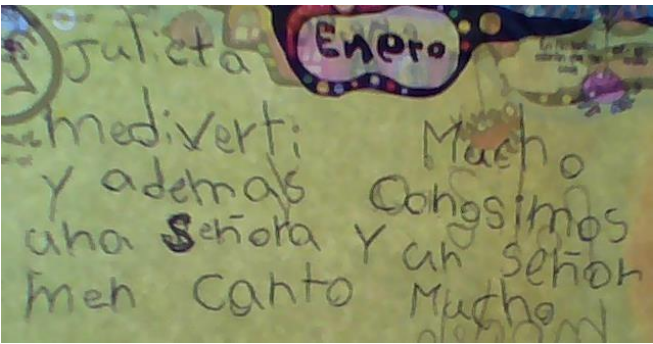 Julieta Enero
mediverti Mucho
y ademas Conosimos
una Señora Y un señor
men canto Mucho